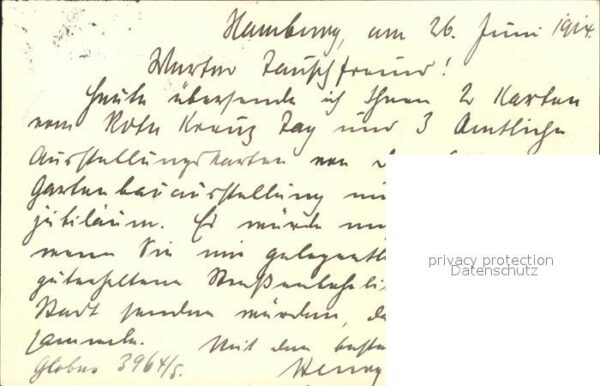 Hamburg, am 26. Juni 1914.
Werter Tauschfreund!
Heute übersende ich Ihnen 2 Karten
vom Roten Kreuz Tag und 3 Amtliche
Ausstellungskarten von der
Gartenbauausstellung
jubiläum. Es würde
wenn Sie mir gelegentl
Straßen
Stadt senden würden, da
sammle. Mit den besten
Globus 3964/5. Henry
privacy protection
Datenschutz